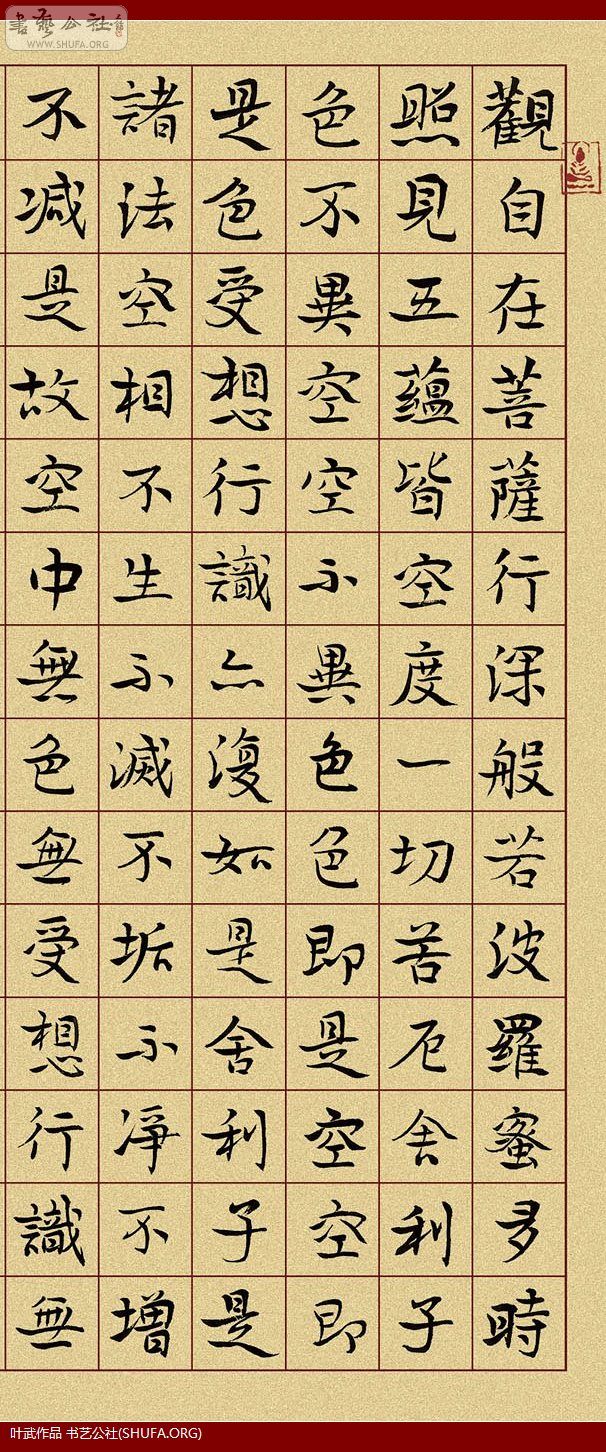 書藝公社
WWW.SHUFA.ORG
觀自在菩薩行深般若波羅蜜多時
照見五蘊皆空度一切苦厄舍利子
色不異空空不異色色即是空空即
是色受想行識亦復如是舍利子是
諸法空相不生不滅不垢不淨不增
不減是故空中無色無受想行識無
叶武作品 书艺公社(SHUFA.ORG)